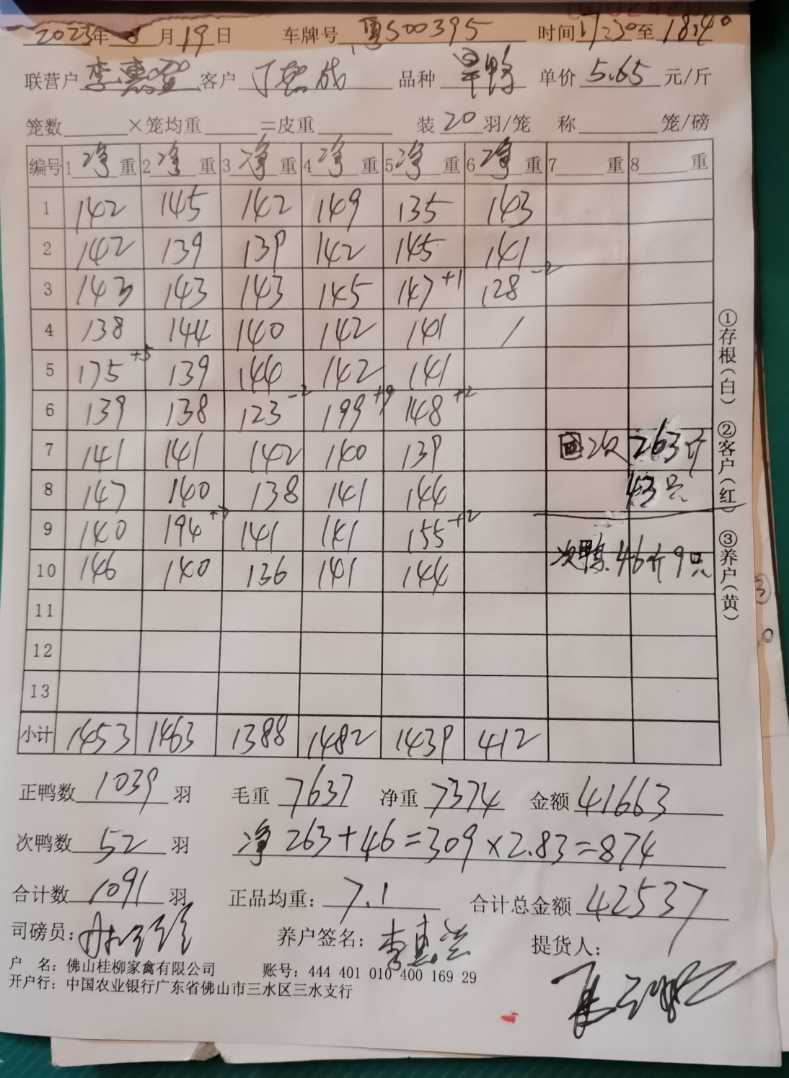 2023年8月19日 车牌号 粤S00395 时间17:30至18:40
联营户 李惠 客户 丁 成 品种 旱鸭 单价 5.65 元/斤
笼数 ×笼均重 =皮重 装 20 羽/笼 称 笼/磅
编号 1 净 重 2 净 重 3 净 重 4 净 重 5 净 重 6 净 重 7 重 8 重
1 142 145 142 149 135 143
2 142 139 139 142 145 141
3 143 143 143 145 147+1 128-2
4 138 144 140 142 141 /
5 175+5 139 144 142 141
6 139 138 123-2 199+9 148+2
7 141 141 142 140 139 回次 263斤
8 147 140 138 141 144 43只
9 140 194+7 141 141 155+2
10 146 140 136 141 144 次鸭 46斤9只
11
12
13
小计 1453 1463 1388 1482 1439 412
①存根(白) ②客户(红) ③养户(黄)
正鸭数 1039 羽 毛重 7637 净重 7374 金额 41663
次鸭数 52 羽 净 263+46=309×2.83=874
合计数 1091 羽 正品均重: 7.1 合计总金额 42537
司磅员: 养户签名: 李惠 提货人:
户 名: 佛山桂柳家禽有限公司 账号: 444 401 010 400 169 29
开户行: 中国农业银行广东省佛山市三水区三水支行